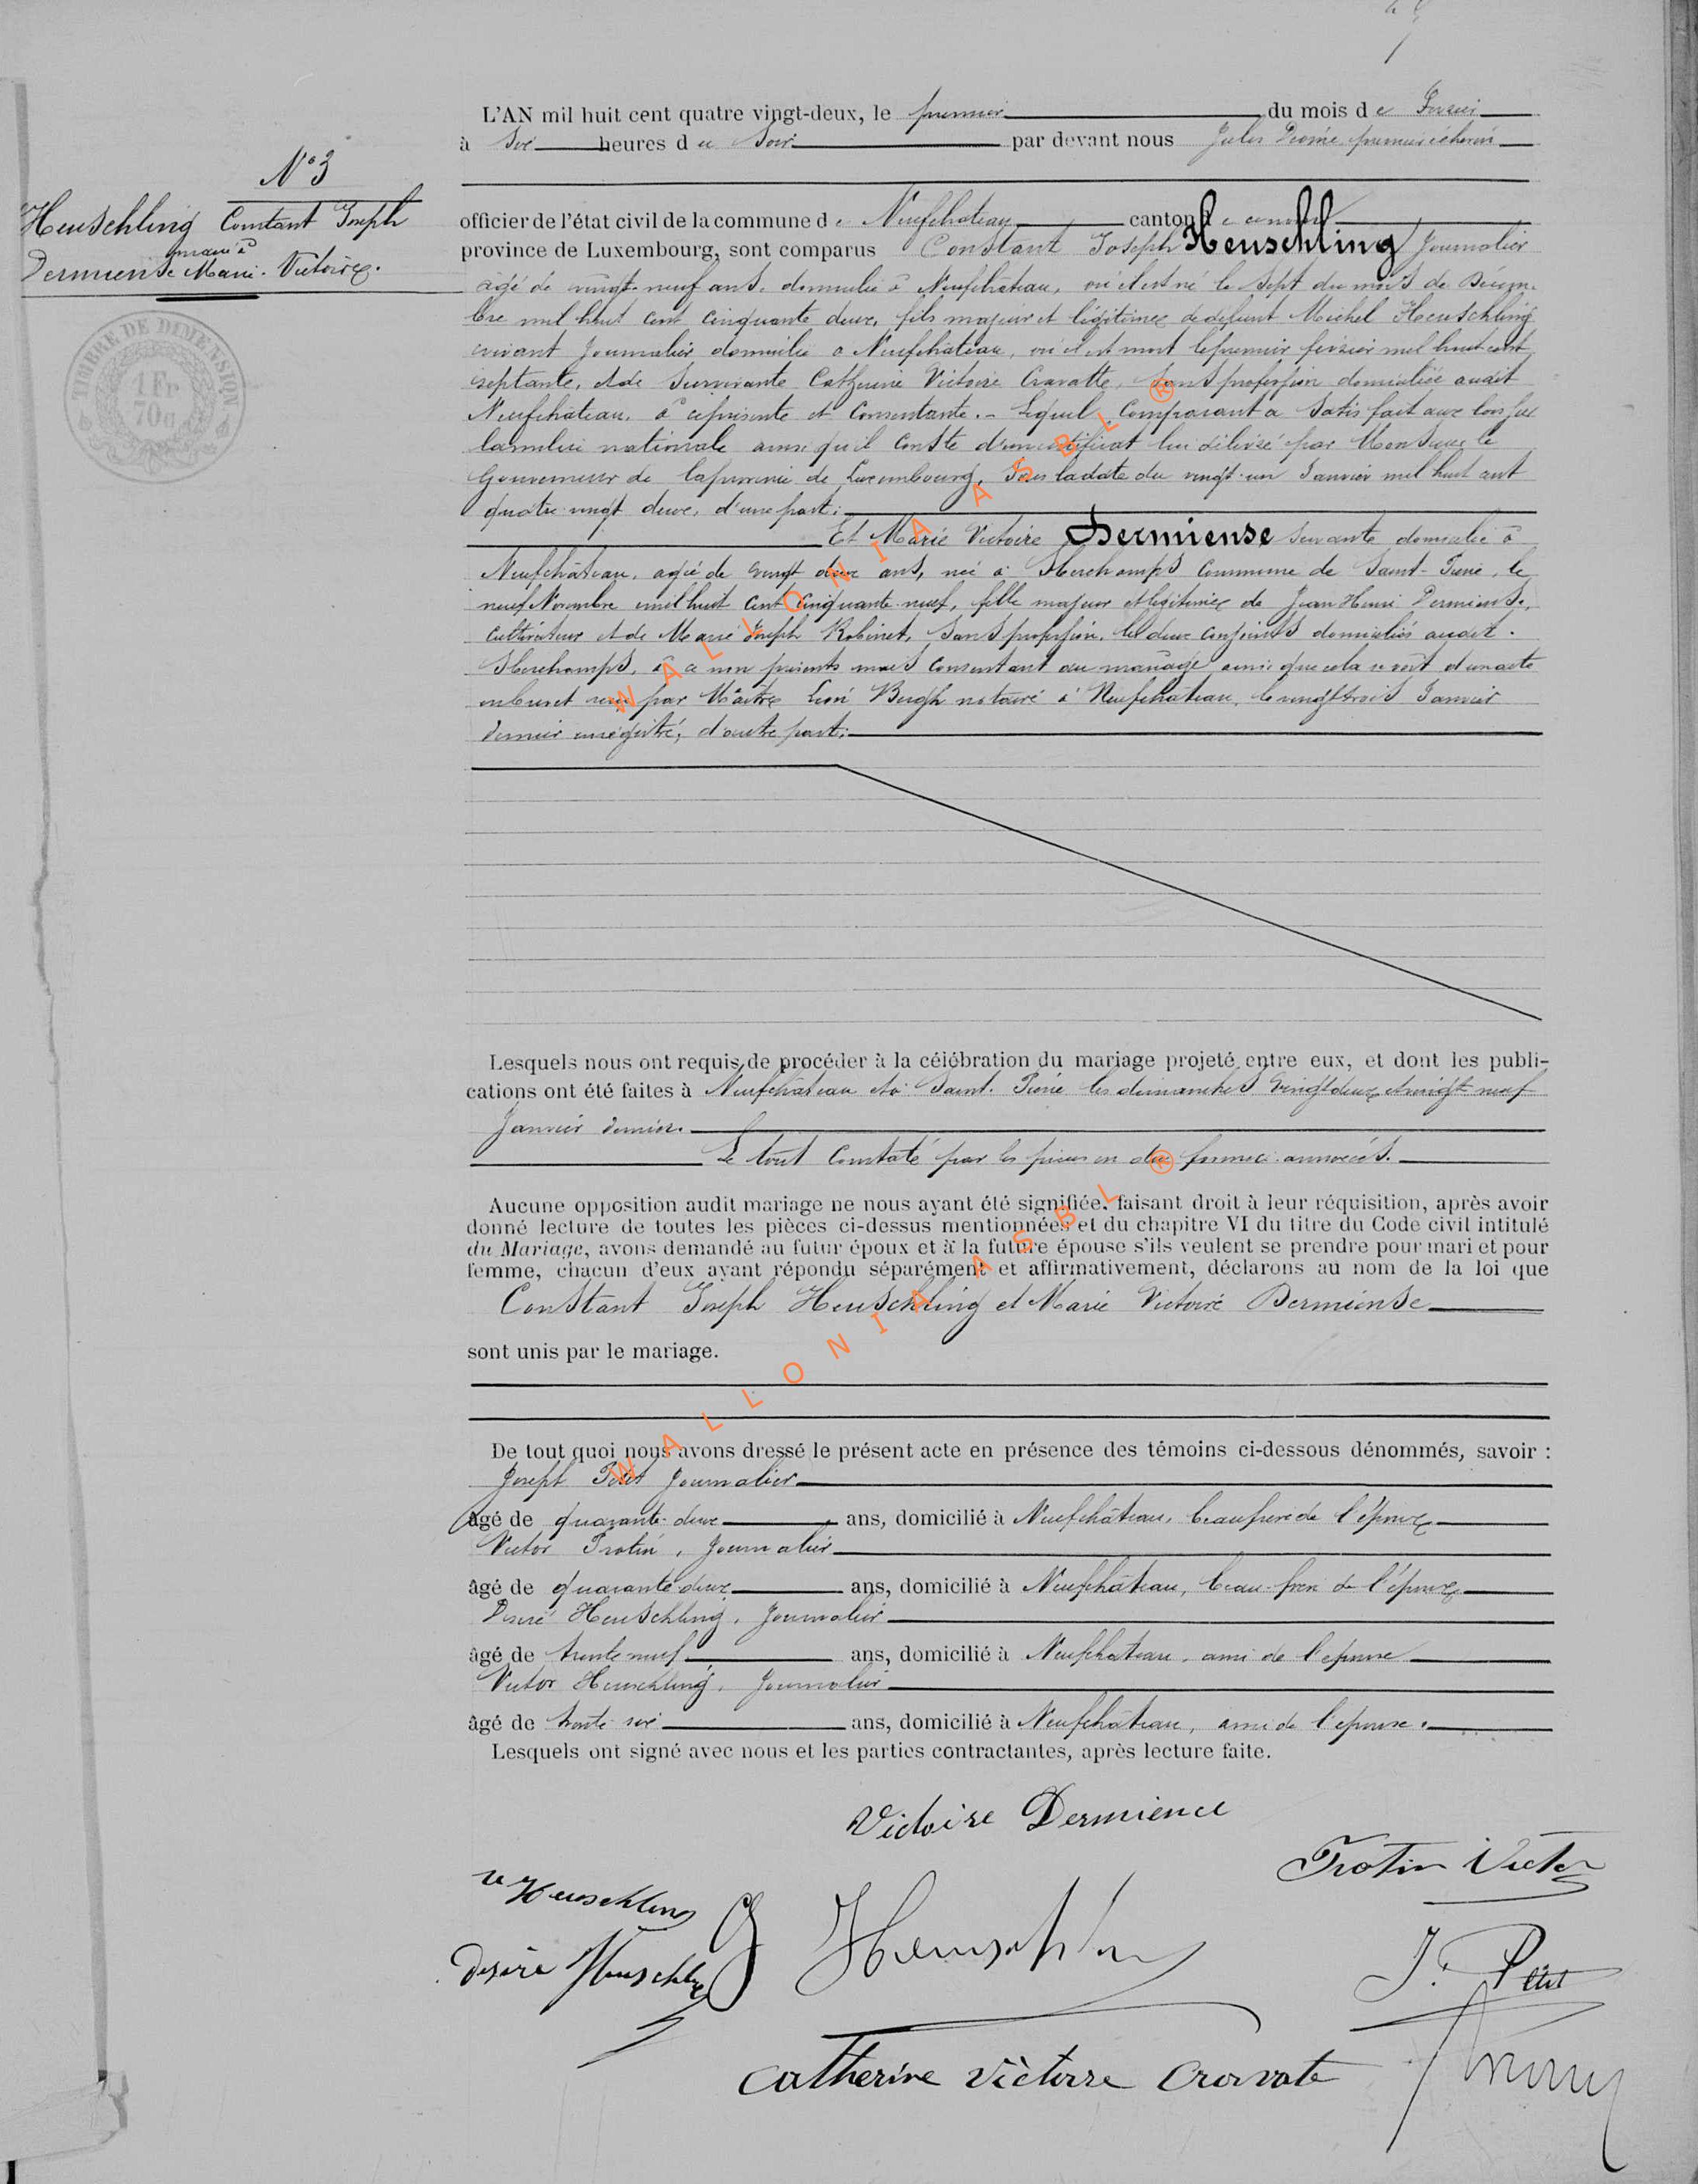 N° 3
Heuschling Constant Joseph
marié à
Dermiense Marie-Victoire.
TIMBRE DE DIMENSION
1 Fr
70c
L'AN mil huit cent quatre vingt-deux, le premier du mois de Février
à Six heures du Soir par devant nous Jules premier échevin
officier de l'état civil de la commune de Neufchateau canton de ce nom
province de Luxembourg, sont comparus Constant Joseph Heuschling Journalier
âgé de vingt-neuf ans, domicilié à Neufchâteau, où il est né le Sept du mois de Décem-
bre mil huit cent cinquante deux, fils majeur et légitime de défunt Michel Heuschling
vivant Journalier domicilié à Neufchâteau, où il est mort le premier février mil huit cent
septante, et de Survivante Catherine Victoire Cravatte, Sans profession domiciliée audit
Neufchâteau, à ce présente et Consentante. - Lequel Comparant a Satisfait aux lois sur
la milice nationale ainsi qu'il Conste d'un certificat lui délivré par Monsieur le
Gouverneur de la province de Luxembourg, Sous la date du vingt-un Janvier mil huit cent
quatre-vingt deux, d'une part;
Et Marie Victoire Dermiense Servante domicilié à
Neufchâteau, agée de vingt deux ans, née à Sberchamps Commune de Saint-Pierre, le
neuf Novembre mil huit Cent Cinquante-neuf, fille majeur et légitime de Jean Henri Dermiense,
Cultivateur et de Marie Joseph Robinet, Sans profession, les deux Conjoints domiciliés audit
Sberchamps, à ce non présents mais Consentant au mariage ainsi que cela se voit d'un acte
en brevet reçu par Maître Léon Bergh notaire à Neufchateau, le vingt trois Janvier
dernier enregistré, d'autre part;
Lesquels nous ont requis de procéder à la célébration du mariage projeté entre eux, et dont les publi-
cations ont été faites à Neufchâteau et à Saint-Pierre les dimanches vingt deux et vingt neuf
Janvier dernier.
Le tout Constaté par les pièces en due forme ci-annexées.
Aucune opposition audit mariage ne nous ayant été signifiée, faisant droit à leur réquisition, après avoir
donné lecture de toutes les pièces ci-dessus mentionnées et du chapitre VI du titre du Code civil intitulé
du Mariage, avons demandé au futur époux et à la future épouse s'ils veulent se prendre pour mari et pour
femme, chacun d'eux ayant répondu séparément et affirmativement, déclarons au nom de la loi que
Constant Joseph Heuschling et Marie Victoire Dermiense
sont unis par le mariage.
De tout quoi nous avons dressé le présent acte en présence des témoins ci-dessous dénommés, savoir :
Joseph Petit Journalier
âgé de quarante-deux ans, domicilié à Neufchâteau, beaufrère de l'époux
Victor Trotin, Journalier
âgé de quarante deux ans, domicilié à Neufchâteau, beau-frère de l'époux
Désiré Heuschling, Journalier
âgé de trente neuf ans, domicilié à Neufchateau, ami de l'epouse
Victor Heuschling, Journalier
âgé de trente six ans, domicilié à Neufchâteau, ami de l'epouse.
Lesquels ont signé avec nous et les parties contractantes, après lecture faite.
Victoire Dermience
Trotin Victor
v Heuschling
C Heuschling
Désiré Heuschling
J. Petit
Catherine Victoire Cravate
WALLONIA ASBL ®
WALLONIA ASBL ®